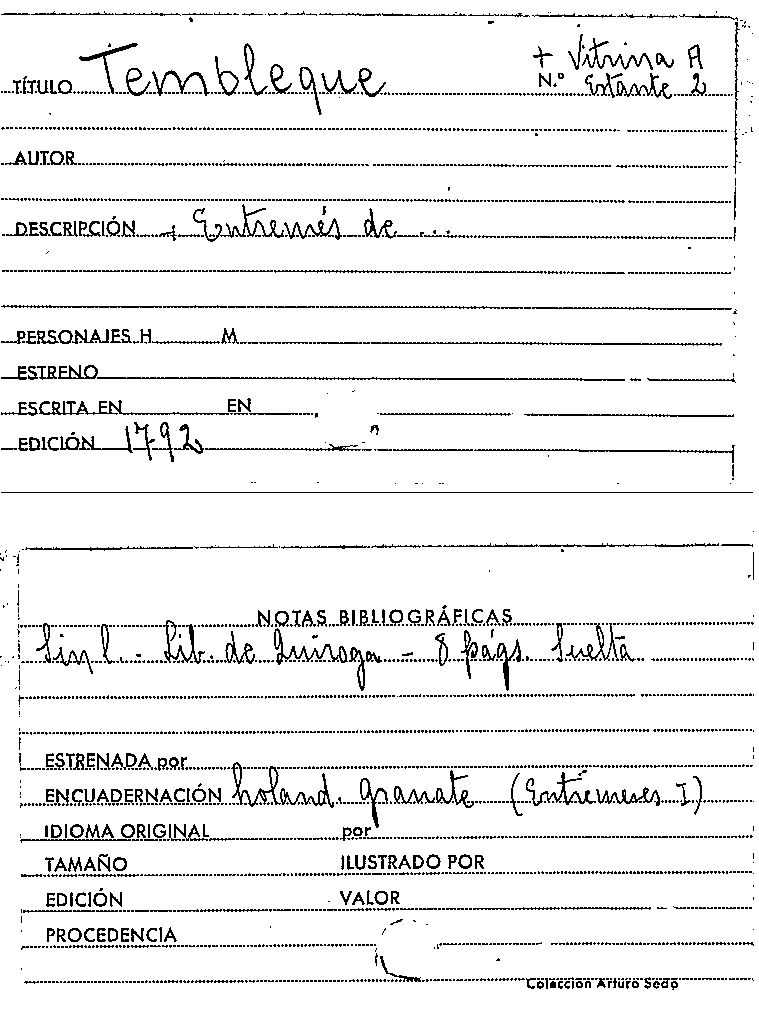 TÍTULO Tembleque + Vitrina A
N.º Estante 2
AUTOR
DESCRIPCIÓN + Entremés de ...
PERSONAJES H M
ESTRENO
ESCRITA EN EN
EDICIÓN 1792
NOTAS BIBLIOGRÁFICAS
Sin l. - Lib. de Quiroga - 8 págs. Suelta
ESTRENADA por
ENCUADERNACIÓN holand. granate (Entremeses I)
IDIOMA ORIGINAL por
TAMAÑO ILUSTRADO POR
EDICIÓN VALOR
PROCEDENCIA
Colección Arturo Sedo